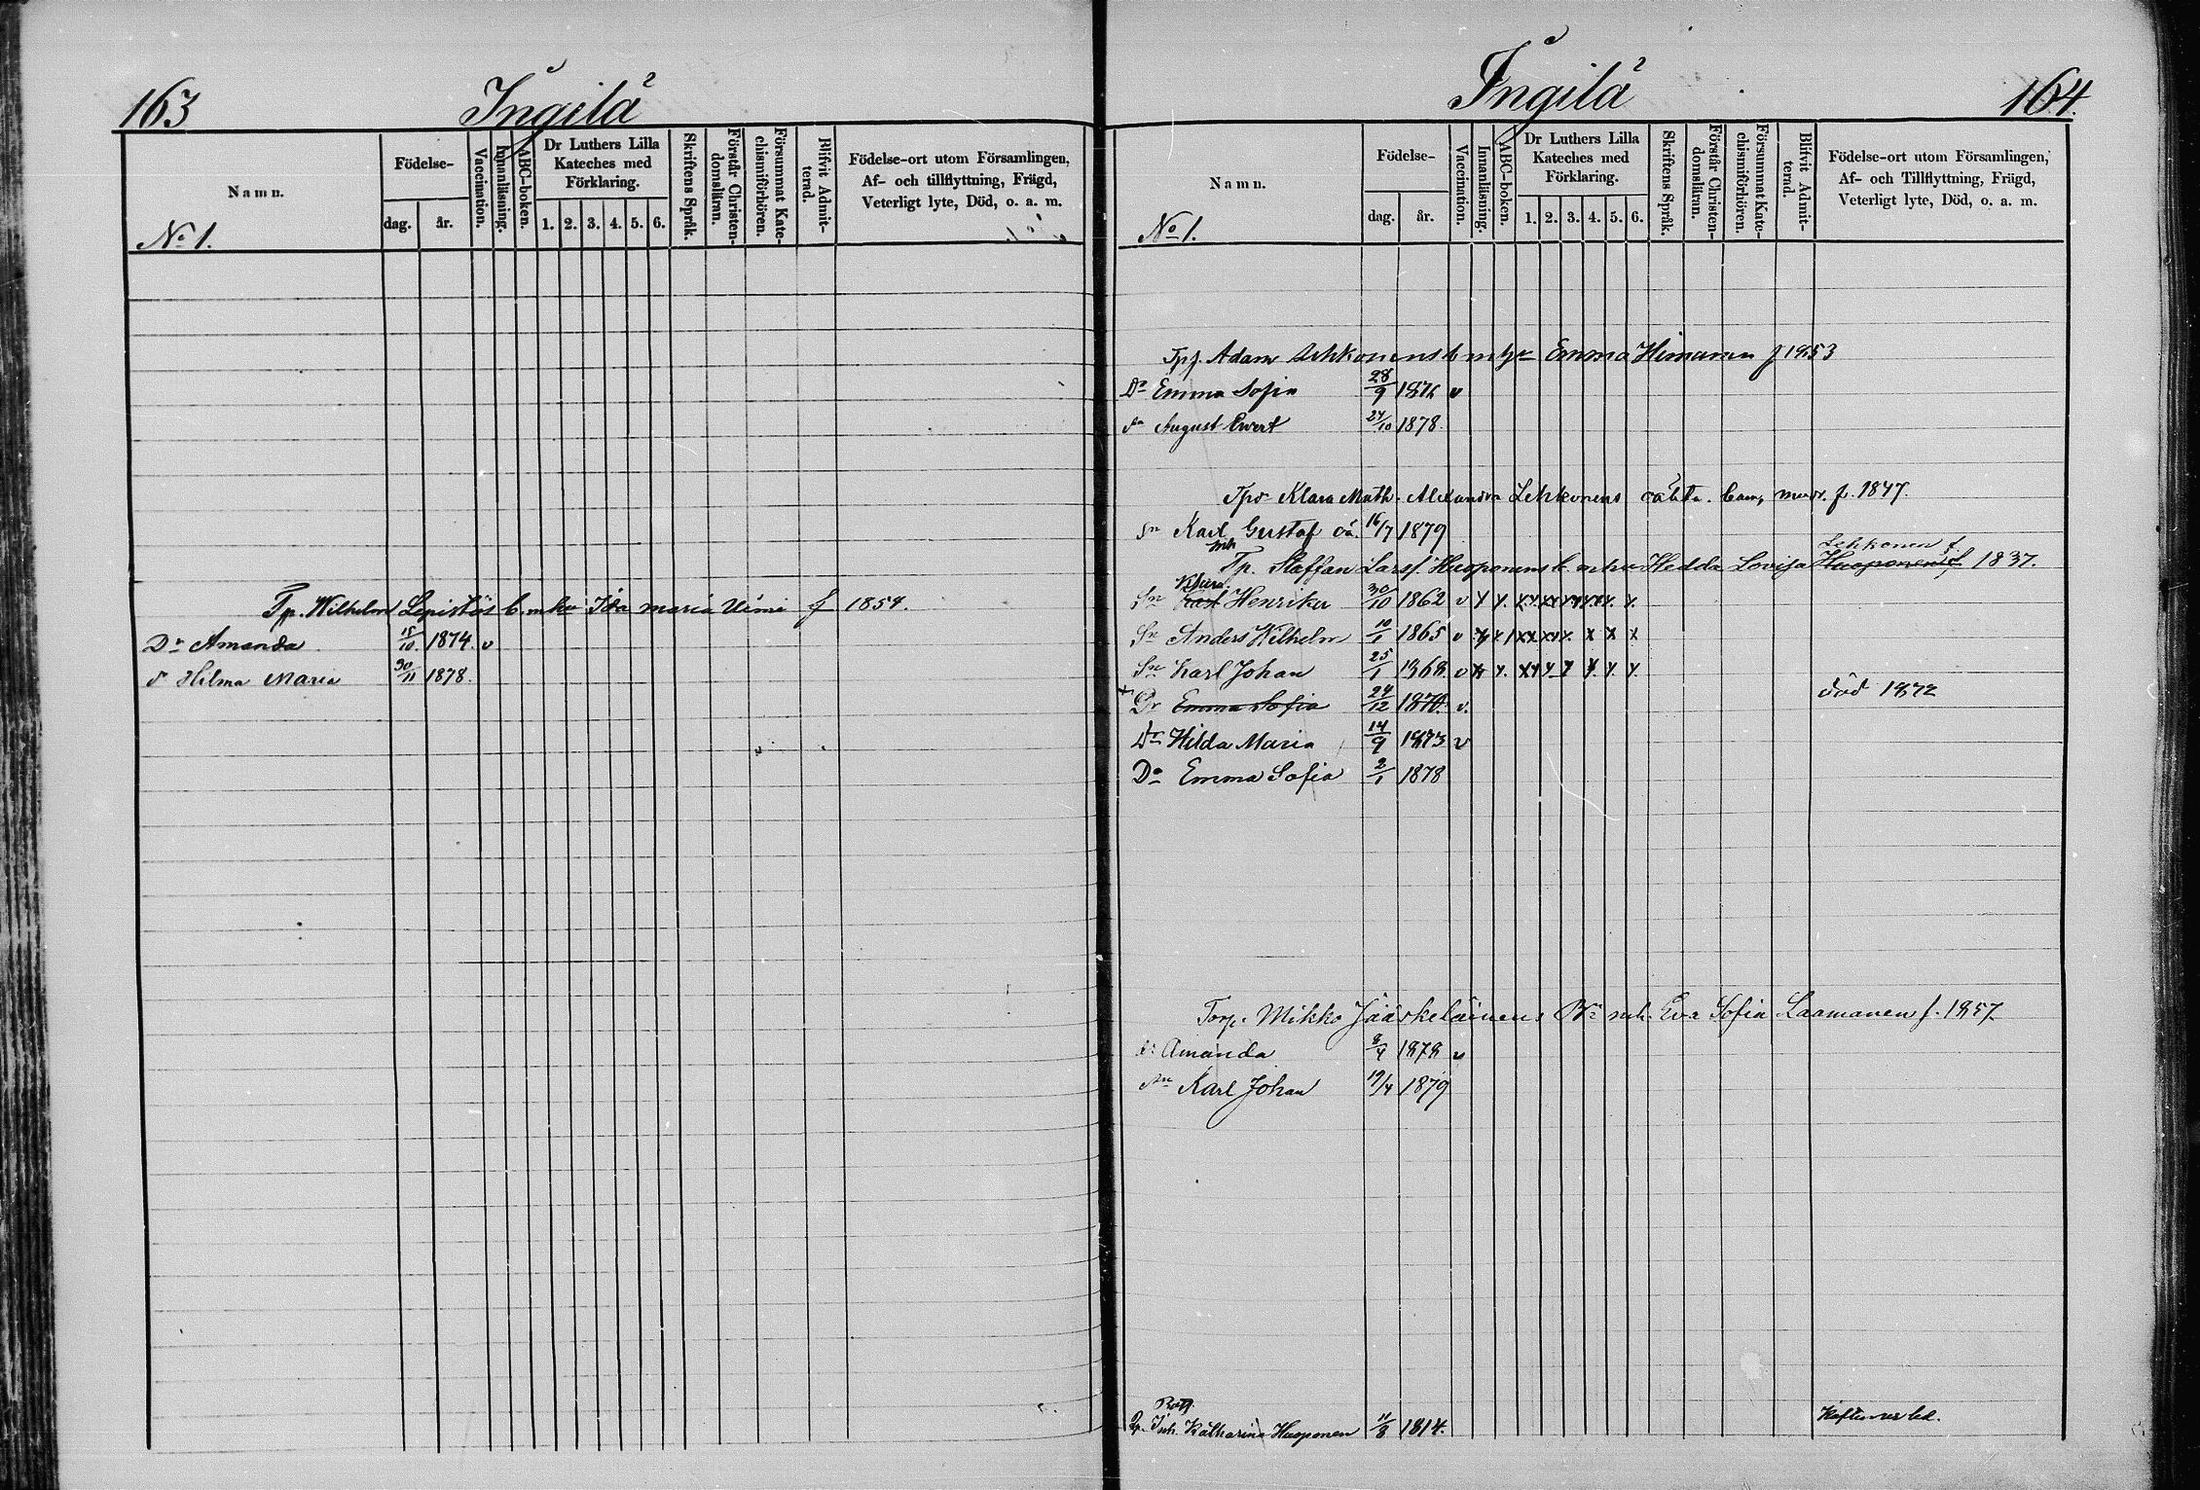 163
Ingilä
Namn.
Födelse-
dag.
år.
Vaccination.
Innanläsning.
ABC-boken.
Dr Luthers Lilla
Kateches med
Förklaring.
1. 2. 3. 4. 5. 6.
Skriftens Språk.
Förstår Christen-
domsläran.
Försummat Kate-
chismiförhören.
Blifvit Admit-
terad.
Födelse-ort utom Församlingen,
Af- och tillflyttning, Frägd,
Veterligt lyte, Död, o. a. m.
No 1.
Tp. Wilhelm Lepistös b. m hu Ida Maria f 1854.
Dr Amanda 15/10 1874. v
d Hilma Maria 30/11 1878.
Ingilä
164.
Namn.
Födelse-
dag.
år.
Vaccination.
Innanläsning.
ABC-boken.
Dr Luthers Lilla
Kateches med
Förklaring.
1. 2. 3. 4. 5. 6.
Skriftens Språk.
Förstår Christen-
domsläran.
Försummat Kate-
chismiförhören.
Blifvit Admit-
terad.
Födelse-ort utom Församlingen,
Af- och Tillflyttning, Frägd,
Veterligt lyte, Död, o. a. m.
No 1.
Adam b m hu Emma Himanen f 1853
Dr Emma Sofia 28/9 1876 v
August Evert 24/10 1878.
Klara Math. Alexandra Lehkonens oäkta barn, f. 1847.
Sn Karl Gustaf oä. 16/7 1879
Lehkonen f
Tp. Staffan Larss. Huoponens b. m hu Hedda Lovisa Huoponens f 1837.
Klara
Sn Karl Henrika 30/10 1862 v x x. x x x x x x x. x.
Sn Anders Wilhelm 10/1 1865 v x x x x x x. x x x
Sn Karl Johan 25/1 1868 v x x. x x x x x. x. x.
+ Dr Emma Sofia 24/12 1870. v. död 1872
Dr Hilda Maria 14/9 1873 v
Dr Emma Sofia 2/1 1878
Torp. Mikko Jääskeläinens Bn mh. Eva Sofia Laamanen f. 1857.
Amanda 8/4 1878 v
Sn Karl Johan 19/4 1879
Inh. Katharina Huoponen 11/8 1814.